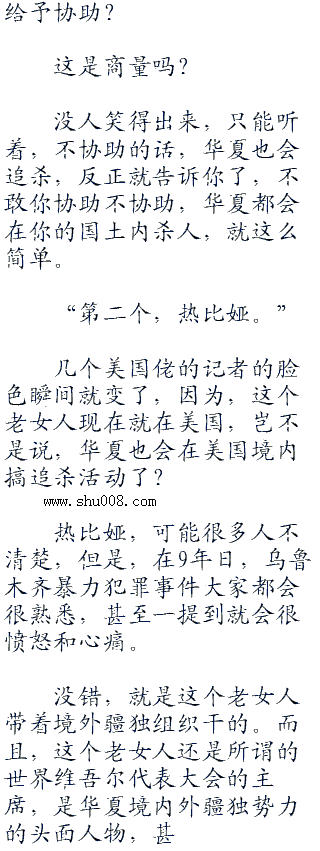 给予协助？
这是商量吗？
没人笑得出来，只能听
着，不协助的话，华夏也会
追杀，反正就告诉你了，不
敢你协助不协助，华夏都会
在你的国土内杀人，就这么
简单。
“第二个，热比娅。”
几个美国佬的记者的脸
色瞬间就变了，因为，这个
老女人现在就在美国，岂不
是说，华夏也会在美国境内
搞追杀活动了？
www.shu008.com
热比娅，可能很多人不
清楚，但是，在9年日，乌鲁
木齐暴力犯罪事件大家都会
很熟悉，甚至一提到就会很
愤怒和心痛。
没错，就是这个老女人
带着境外疆独组织干的。而
且，这个老女人还是所谓的
世界维吾尔代表大会的主
席，是华夏境内外疆独势力
的头面人物，甚